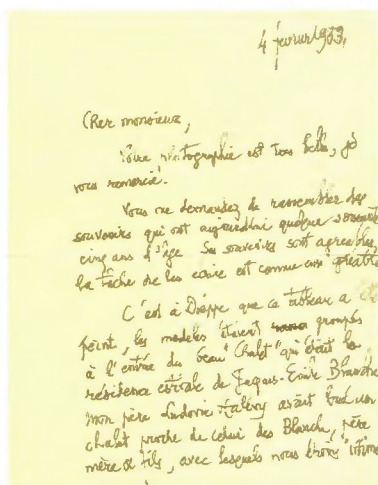 4 fevrier 1953,
Cher monsieur,
Votre photographie est tres belle, je
vous remercie.
Vous me demandez de rassembler des
souvenirs qui ont aujourd'hui quelque soixante
cinq ans d'âge. Les souvenirs sont agreables,
la tâche de les écrire est comme une
C'est à Dieppe que ce tableau a
peint, les modeles étaient groupés
à l'entrée du beau "Chalet" qui était la
résidence estivale de Jacques-Emile Blanche
mon père Ludovic Halévy avait loué un
chalet proche de celui des Blanche, père
mère et fils, avec lesquels nous étions